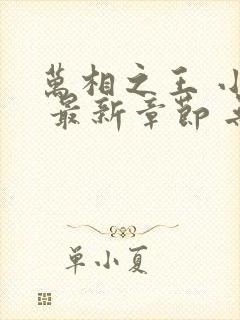 萬相之王 小
最新章節
单小夏